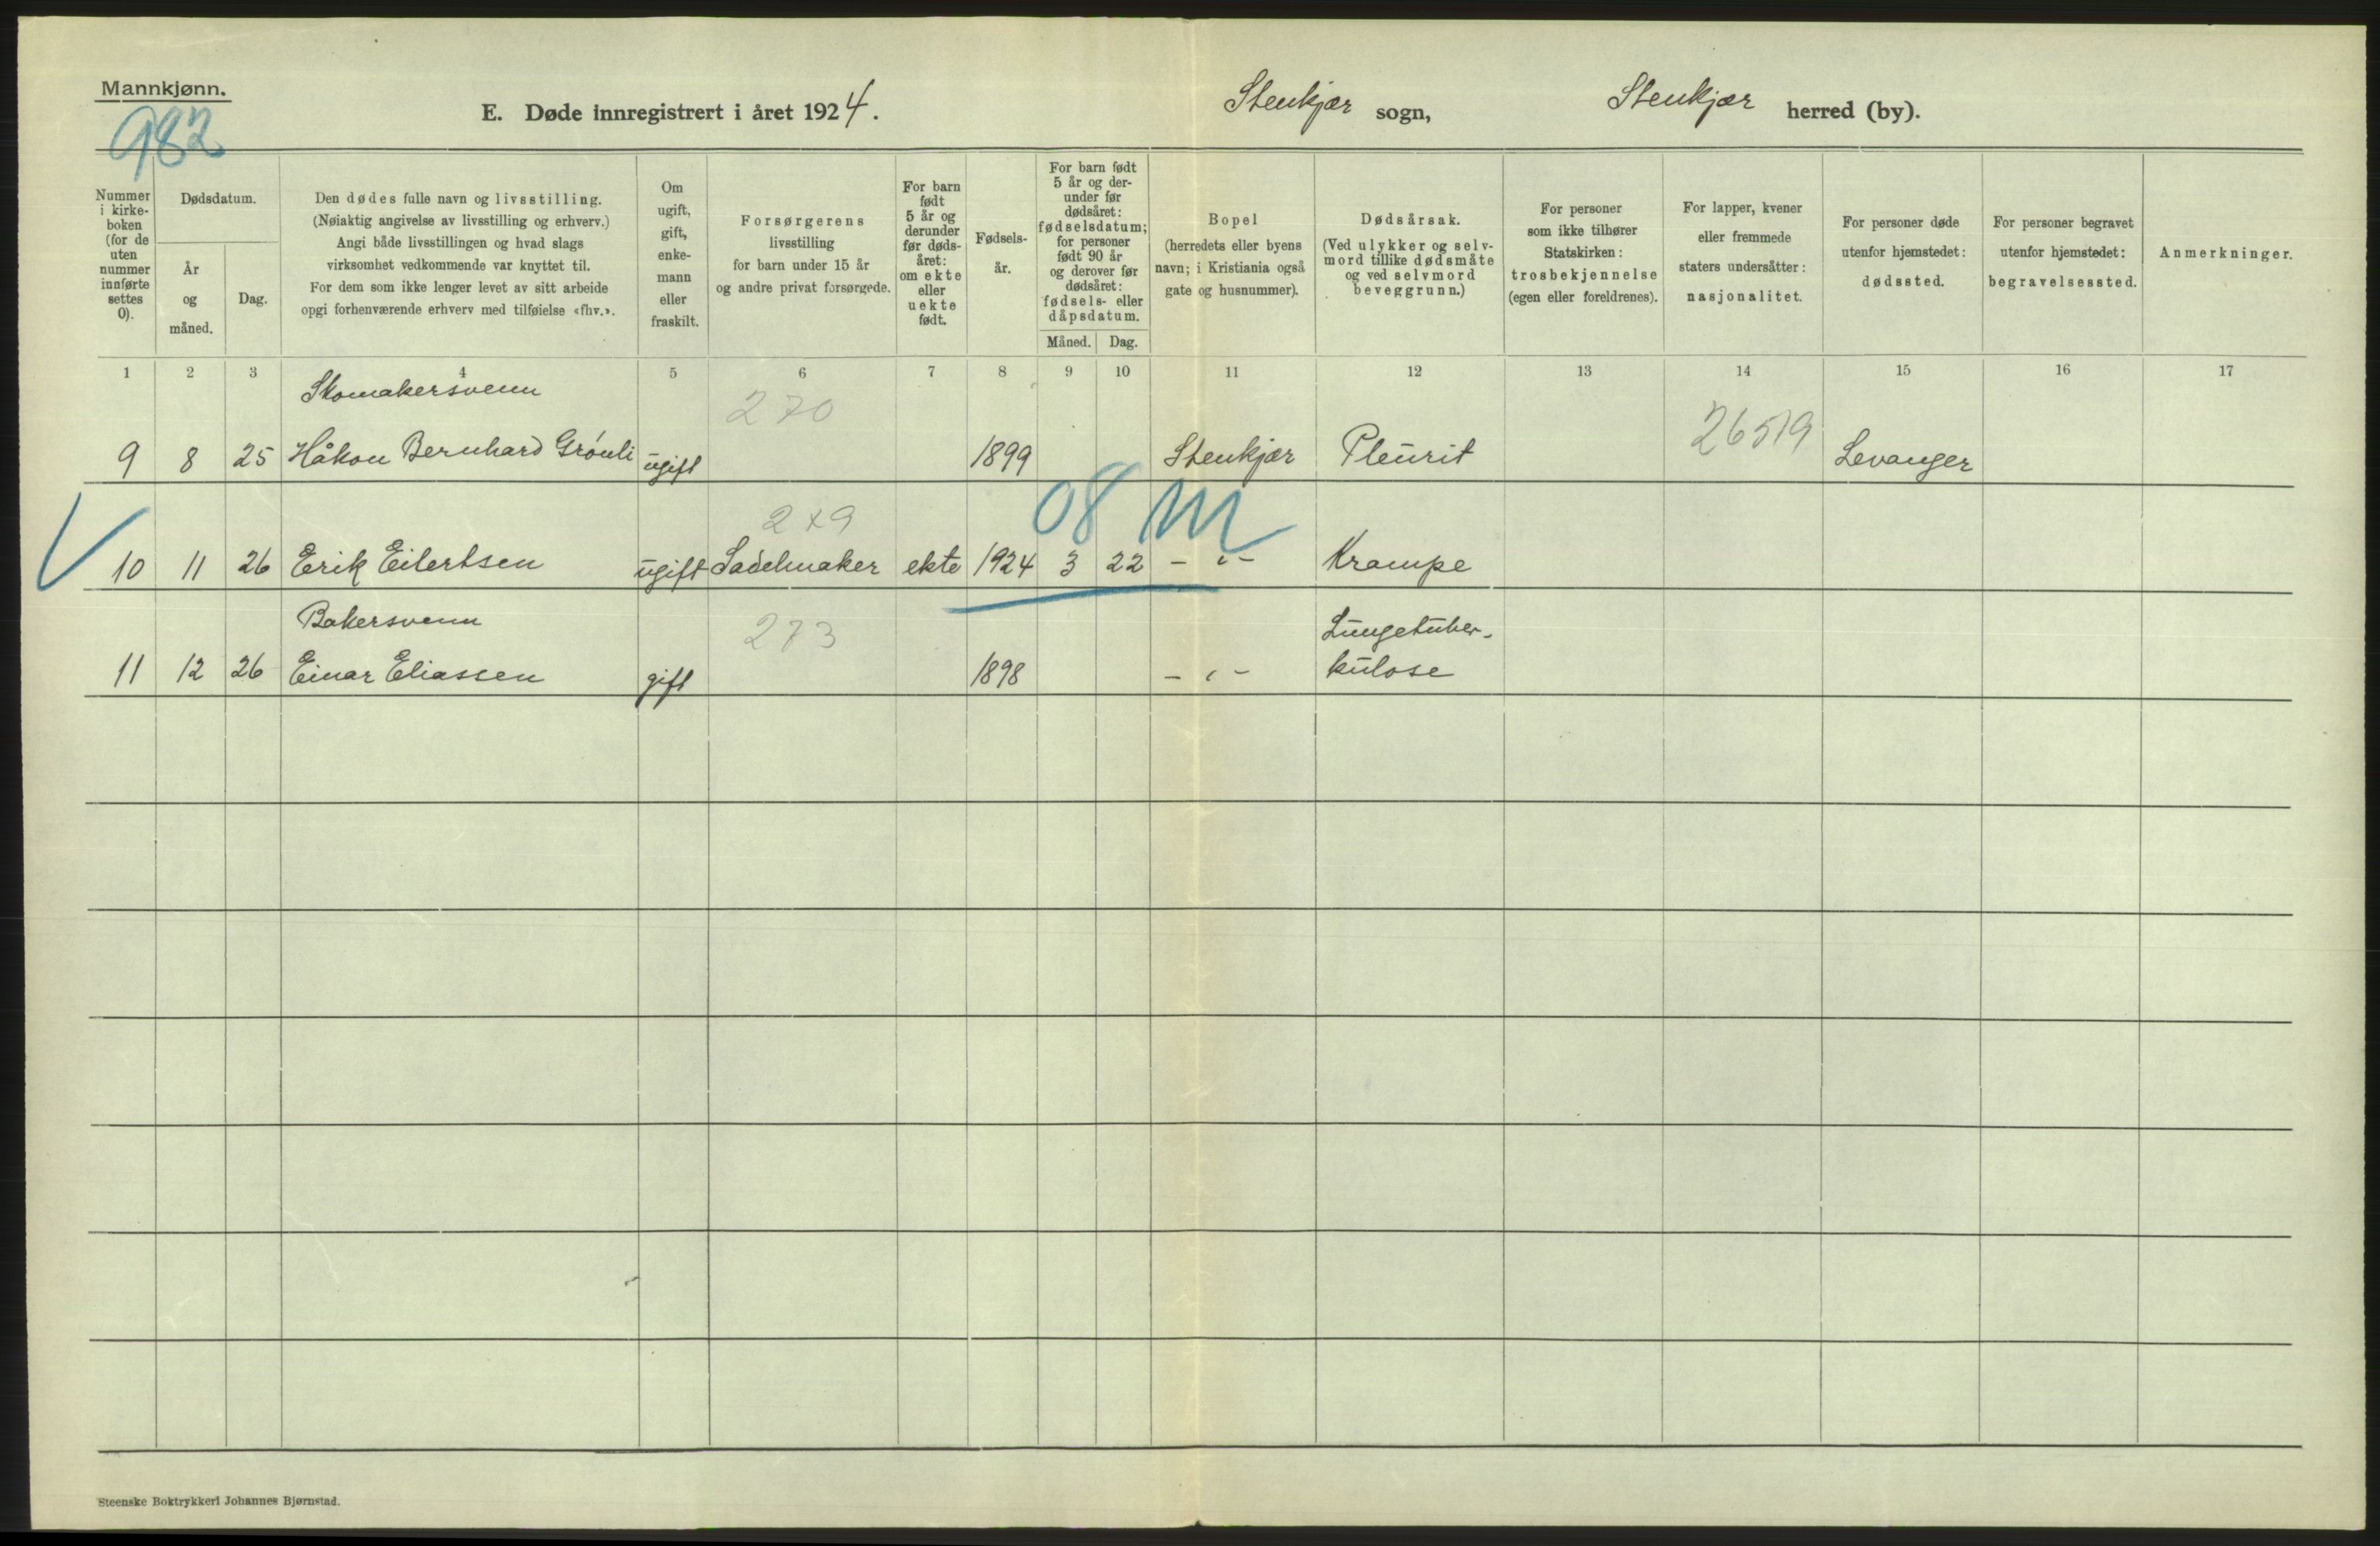 Mannkjønn.
982
E. Døde innregistrert i året 1924.
Stenkjær sogn,
Stenkjær herred (by).
Nummer
i kirke-
boken
(for de
uten
nummer
innførte
settes
0).
Dødsdatum.
År
og
måned.
Dag.
Den dødes fulle navn og livsstilling.
(Nøiaktig angivelse av livsstilling og erhverv.)
Angi både livsstillingen og hvad slags
virksomhet vedkommende var knyttet til.
For dem som ikke lenger levet av sitt arbeide
opgi forhenværende erhverv med tilføielse «fhv.».
Om
ugift,
gift,
enke-
mann
eller
fraskilt.
Forsørgerens
livsstilling
for barn under 15 år
og andre privat forsørgede.
For barn
født
5 år og
derunder
før døds-
året:
om ekte
eller
uekte
født.
Fødsels-
år.
For barn født
5 år og der-
under før
dødsåret:
fødselsdatum;
for personer
født 90 år
og derover før
dødsåret:
fødsels- eller
dåpsdatum.
Måned. Dag.
Bopel
(herredets eller byens
navn; i Kristiania også
gate og husnummer).
Dødsårsak.
(Ved ulykker og selv-
mord tillike dødsmåte
og ved selvmord
beveggrunn.)
For personer
som ikke tilhører
Statskirken:
trosbekjennelse
(egen eller foreldrenes).
For lapper, kvener
eller fremmede
staters undersåtter:
nasjonalitet.
For personer døde
utenfor hjemstedet:
dødssted.
For personer begravet
utenfor hjemstedet:
begravelsessted.
Anmerkninger.
1 2 3 4 5 6 7 8 9 10 11 12 13 14 15 16 17
Skomakersvenn
270
26519
9 8 25 Håkon Bernhard Grönli ugift 1899 Stenkjær Pleurit Levanger
2x9 08 M
10 11 26 Erik Eilertsen ugift Sadelmaker ekte 1924 3 22 - " - Krampe
Bakersvenn 273 Lungetuber-
11 12 26 Einar Eliassen gift 1898 - " - kulose
Steenske Boktrykkeri Johannes Bjørnstad.